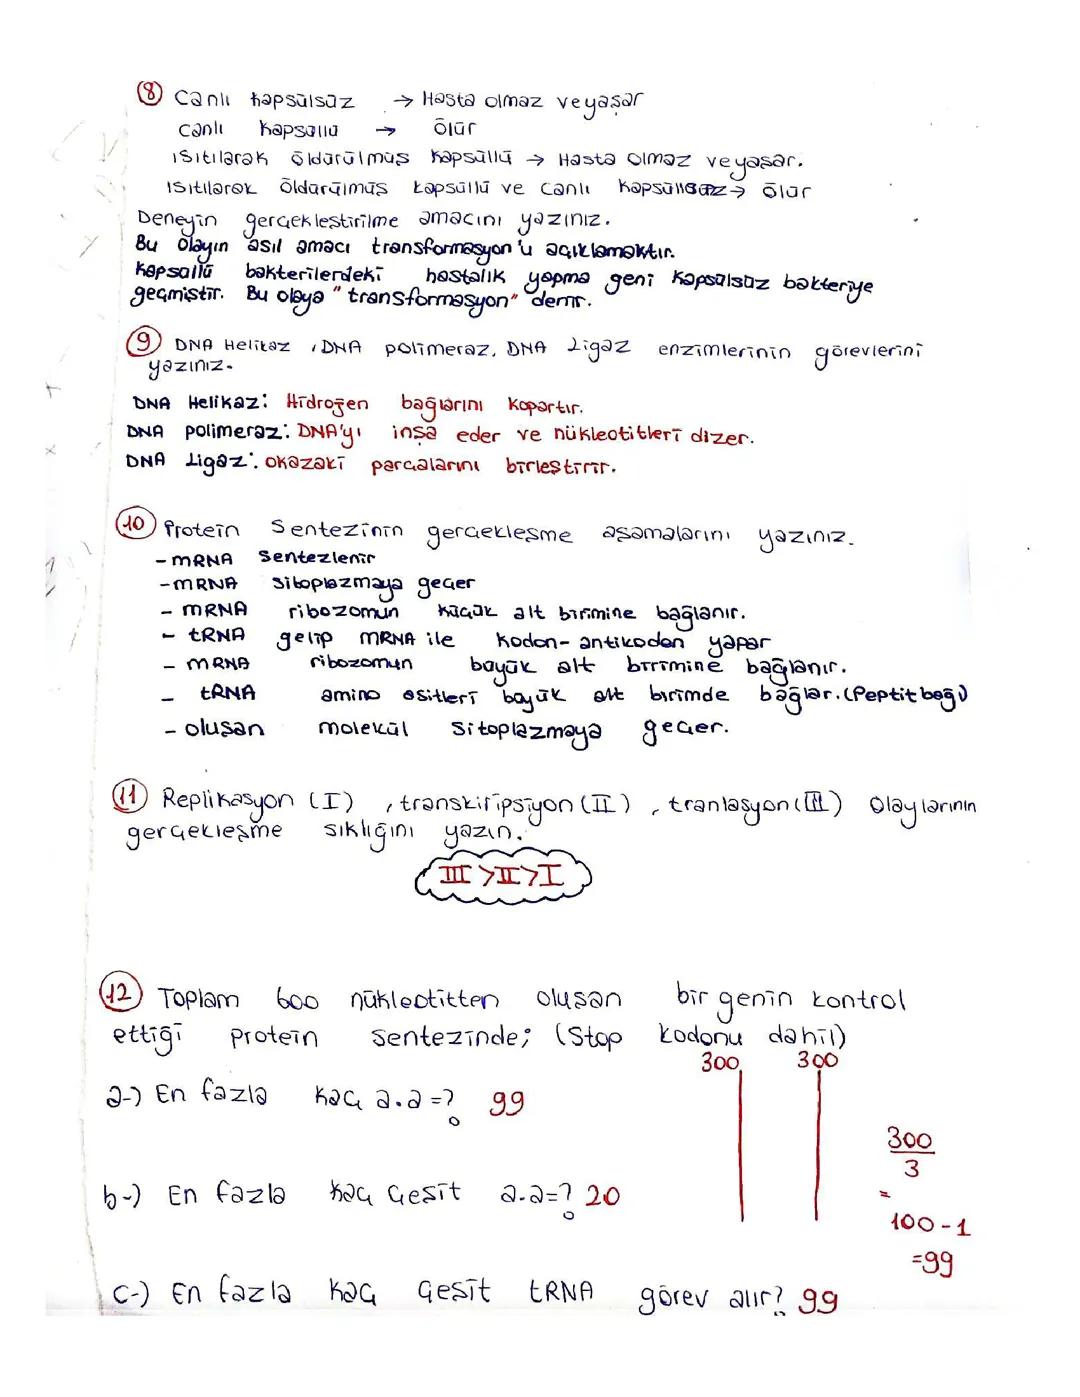 8 Canlı kapsülsüz → Hasta olmaz ve yaşar
Canlı kapsüllü → ölür
ısıtılarak öldürülmüş kapsüllü → Hasta olmaz ve yaşar.
ısıtılarak öldürülmüş kapsüllü ve canlı kapsülsüz → ölür
Deneyin gerçekleştirilme amacını yazınız.
Bu olayın asıl amacı transformasyon'u açıklamaktır.
kapsüllü bakterilerdeki hastalık yapma geni kapsülsüz bakteriye
geçmiştir. Bu olaya "transformasyon" denir.
9 DNA Helikaz, DNA polimeraz, DNA Ligaz enzimlerinin görevlerini
yazınız.
DNA Helikaz: Hidrojen bağlarını kopartır.
DNA polimeraz: DNA'yı inşa eder ve nükleotitleri dizer.
DNA Ligaz: okazaki parçalarını birleştirir.
10 Protein Sentezinin gerçekleşme aşamalarını yazınız.
- mRNA Sentezlenir
- mRNA sitoplazmaya geçer
- mRNA ribozomun küçük alt birimine bağlanır.
- tRNA gelip mRNA ile kodon-antikodon yapar
- mRNA ribozomun büyük alt birimine bağlanır.
- tRNA amino asitleri büyük alt birimde bağlar. (Peptit bağı)
- oluşan molekül sitoplazmaya geçer.
11 Replikasyon (I), transkiripsiyon (II), tranlasyon (III) Olaylarının
gerçekleşme sıklığını yazın.
III > II > I
12 Toplam 600 nükleotitten oluşan bir genin kontrol
ettiği protein sentezinde; (Stop kodonu dahil)
300 300
a-) En fazla kaç a.a =? 99
300
3
=
100-1
=99
b-) En fazla kaç çeşit a.a=? 20
c-) En fazla kaç çeşit tRNA görev alır? 99